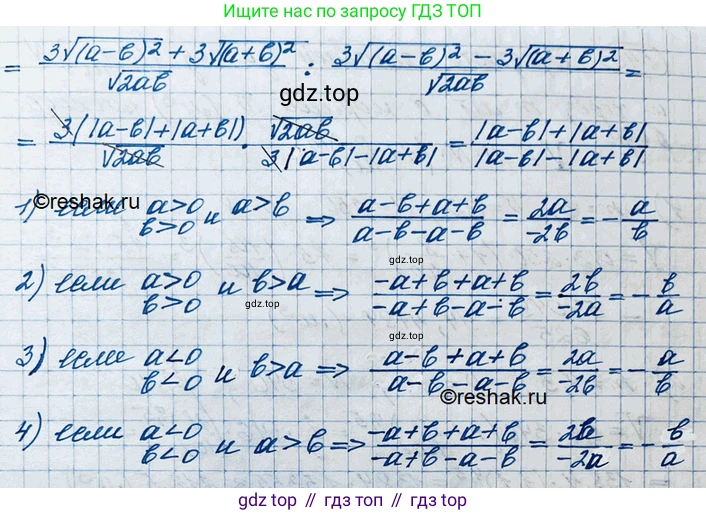 Ищите нас по запросу ГДЗ ТОП
= 3√(a-b)² + 3√(a+b)² / √2ab : 3√(a-b)² - 3√(a+b)² / √2ab =
gdz.top
= 3(|a-b|+|a+b|) / √2ab · √2ab / 3|a-b|-|a+b| = |a-b|+|a+b| / |a-b|-|a+b|
©reshak.ru
1) если a>0 b>0 и a>b ⇒ a-b+a+b / a-b-a-b = 2a / -2b = - a / b
gdz.top
2) если a>0 b>0 и b>a ⇒ -a+b+a+b / -a+b-a-b = 2b / -2a = - b / a
gdz.top
gdz.top
3) если a<0 b<0 и b>a ⇒ a-b+a+b / a-b-a-b = 2a / -2b = - a / b
©reshak.ru
4) если a<0 b<0 и a>b ⇒ -a+b+a+b / -a+b-a-b = 2b / -2a = - b / a
gdz.top // гдз топ // gdz.top